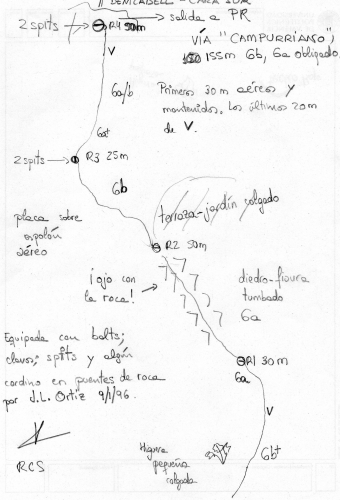 BENICADELL - CARA SUR
2 spits → R4 50m → salida a PR
VÍA "CAMPURRIANO",
155m 6b, 6a obligado.
V
6a/b
Primeros 30m aéreos y
mantenidos. Los últimos 20m
de V.
6a+
2 spits → R3 25m
6b
terraza-jardín colgado
placa sobre
espolón
aéreo
R2 50m
¡ojo con
la roca!
diedro-fisura
tumbado
6a
Equipada con bolts;
clavos, spits y algún
cordino en puentes de roca
por J.L. Ortiz 9/1/96.
R1 30m
6a
V
6b+
Higuera
pequeña
colgada
RCS